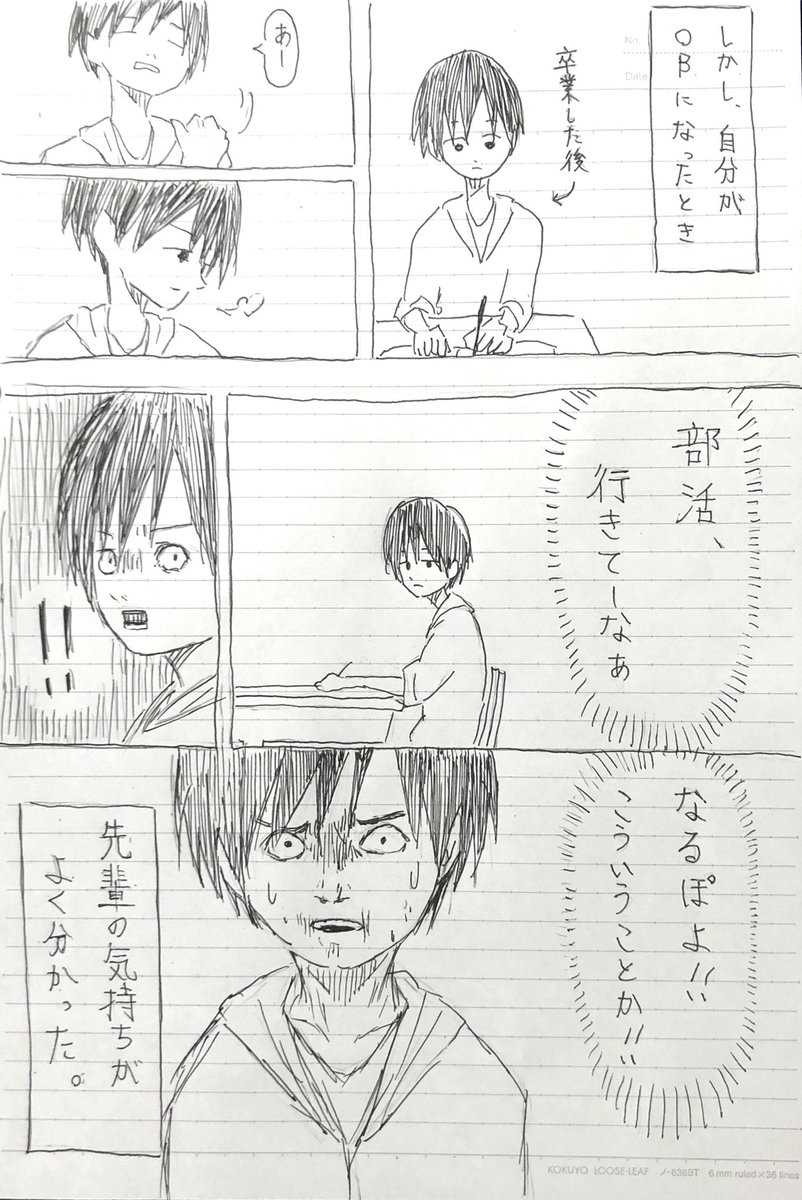 しかし、自分が
OBになったとき
卒業した後
あー
部活、
行きてーなぁ
!!
なるぽよ!!
こういうことか!!
先輩の気持ちが
よく分かった。
No.
Date
KOKUYO LOOSE-LEAF ノ-836BT 6 mm ruled×36 lines